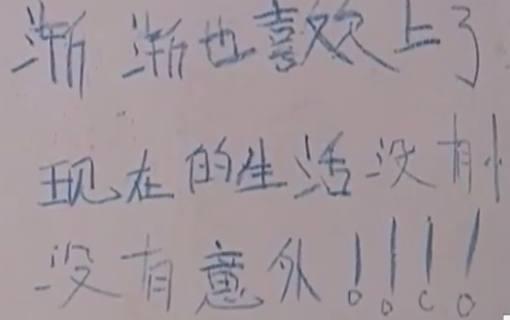 渐渐也喜欢上了
现在的生活没有
没有意外！！！！